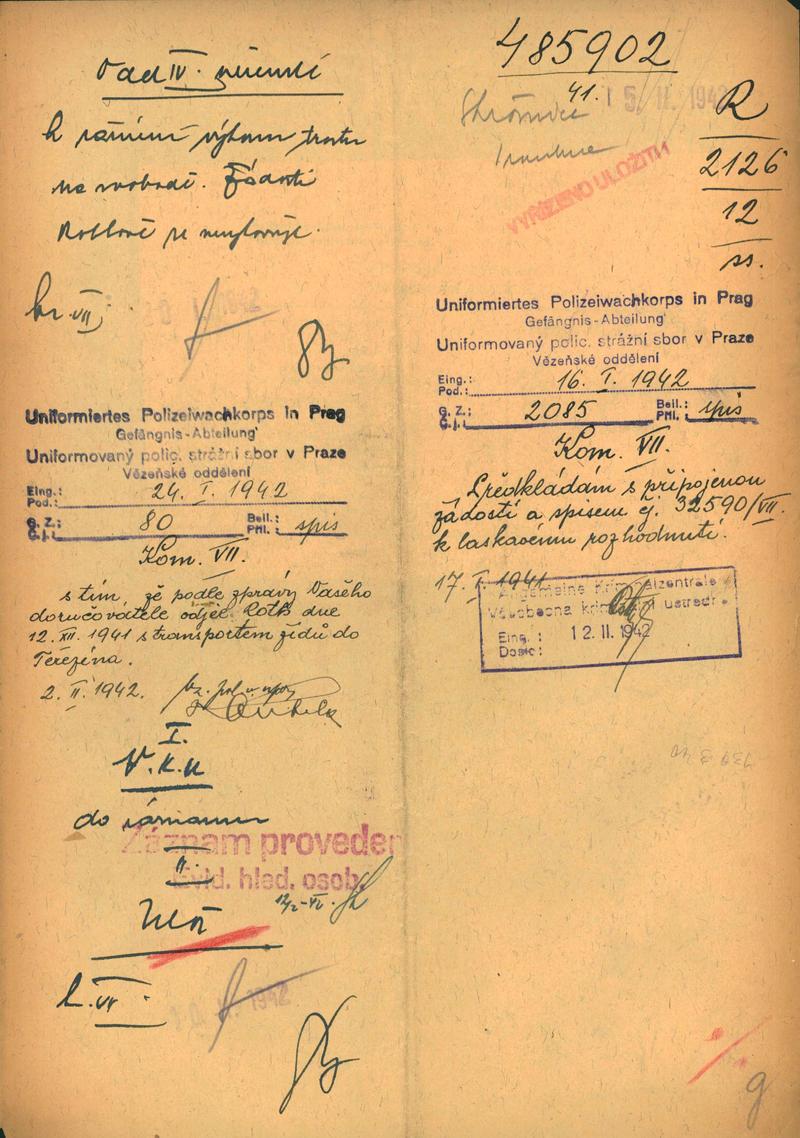 Odd IV.
k výkonu trestu
na svobodě. Žádosti
se nevyhovuje.
kr. VII.
1942
Uniformiertes Polizeiwachkorps in Prag
Gefängnis-Abteilung
Uniformovaný polic. strážní sbor v Praze
Vězeňské oddělení
Eing.:
Pod.: 24. I. 1942
G. Z.:
Č. j.: 80 Beil.:
Příl.: spis
Kom. VII.
s tím, že podle zprávy Vašeho
doručovatele odjel Roth dne
12. XII. 1941 s transportem židů do
Terezína.
2. II. 1942.
I.
V.K.U
do
Záznam proveden
II.
Evid. hled. osob.
k. VII.
1942
485902
41.
15. II. 1942
R
2126
12
ss.
VYŘÍZENO ULOŽITI!
Uniformiertes Polizeiwachkorps in Prag
Gefängnis-Abteilung
Uniformovaný polic. strážní sbor v Praze
Vězeňské oddělení
Eing.:
Pod.: 16. I. 1942
G. Z.:
Č. j.: 2085 Beil.:
Příl.: spis
Kom. VII.
Předkládám s připojenou
žádostí a spisem čj. 32590/VII.
k laskavému rozhodnutí.
17. I. 1941
Allgemeine Kriminalzentrale
Všeobecná krimin. ústředna
Eing.: 12. II. 1942
Došlo:
g